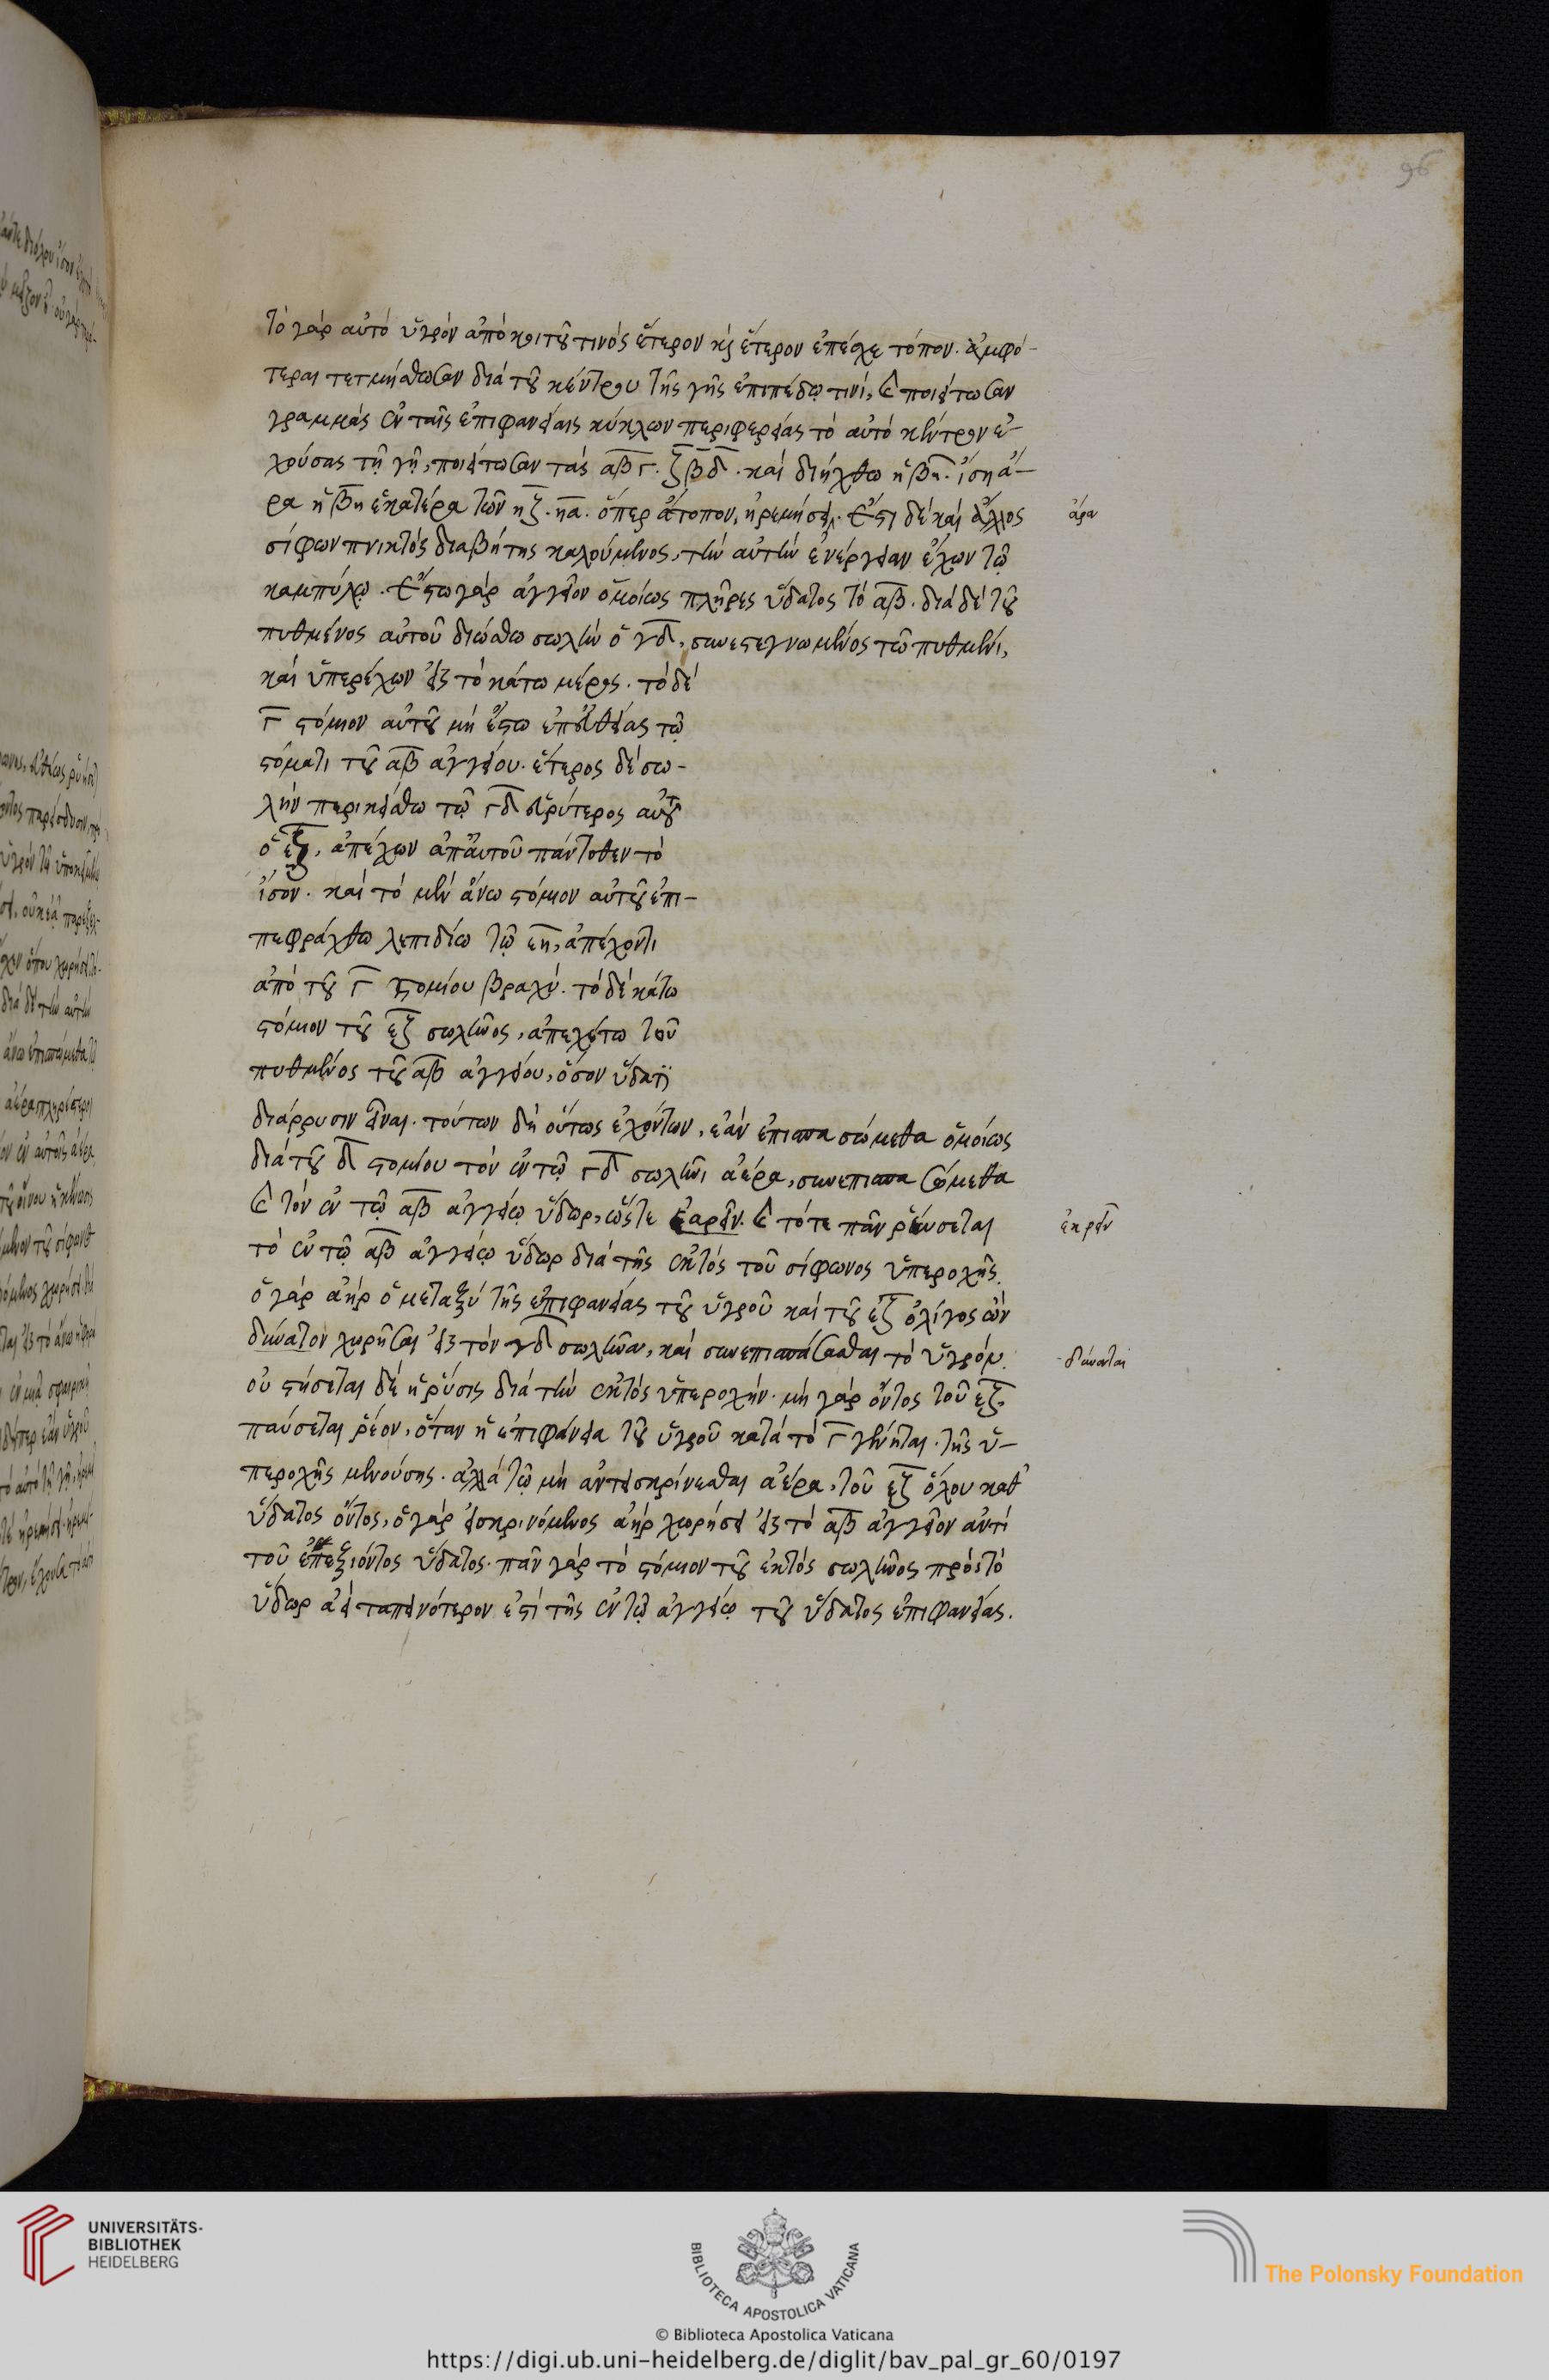 96
τὸ γὰρ αὐτὸ ὑγρὸν ἀπὸ κοιτοῦ τινὸς ἕτερον καὶ ἕτερον ἐπέσχε τόπον. ἀμφό-
τεραι τετμήσθωσαν διὰ τοῦ κέντρου τῆς γῆς ἐπιπέδῳ τινί, καὶ ποιείτωσαν
γραμμὰς ἐν ταῖς ἐπιφανείαις κύκλων περιφερείας τὸ αὐτὸ κέντρον ἐ-
χούσας τῇ γῇ, ποιείτωσαν τὰς αβγ. ζβδ. καὶ διήχθω ἡ βη. ἴση ἄ-
ρα ἡ βη ἑκατέρα τῶν ηζ. ηα. ὅπερ ἄτοπον, ἠρεμήσει. ἔστι δὲ καὶ ἄλλος
ἄρα
σίφων πνικτὸς διαβήτης καλούμενος, τὴν αὐτὴν ἐνέργειαν ἔχων τῷ
καμπύλῳ. ἔστω γὰρ ἀγγεῖον ὁμοίως πλῆρες ὕδατος τὸ αβ. διὰ δὲ τοῦ
πυθμένος αὐτοῦ διώσθω σωλὴν ὁ γδ, συνεστεγνωμένος τῷ πυθμένι,
καὶ ὑπερέχων εἰς τὸ κάτω μέρος. τὸ δὲ
γ στόμιον αὐτοῦ μὴ ἔστω ἐπ' εὐθείας τῷ
στόματι τοῦ αβ ἀγγείου. ἕτερος δὲ σω-
λὴν περικείσθω τῷ γδ εὐρύτερος αὐτοῦ
ὁ εζ, ἀπέχων ἀπ' αὐτοῦ πάντοθεν τὸ
ἴσον. καὶ τὸ μὲν ἄνω στόμιον αὐτοῦ ἐπι-
πεφράχθω λεπιδίω τῷ εη, ἀπέχοντι
ἀπὸ τοῦ γ στομίου βραχύ. τὸ δὲ κάτω
στόμιον τοῦ εζ σωλῆνος, ἀπεχέτω τοῦ
πυθμένος τοῦ αβ ἀγγείου, ὅσον ὕδατϊ
διάρρυσιν εἶναι. τούτων δὴ οὕτως ἐχόντων, ἐὰν ἐπισπασώμεθα ὁμοίως
διὰ τοῦ δ στομίου τὸν ἐν τῷ γδ σωλῆνι ἀέρα, συνεπισπασόμεθα
καὶ τὸν ἐν τῷ αβ ἀγγείῳ ὕδωρ, ὥστε ἐαρεῖν. καὶ τότε πᾶν ῥεύσεται
ἐκρεῖν
τὸ ἐν τῷ αβ ἀγγείῳ ὕδωρ διὰ τῆς ἐκτὸς τοῦ σίφωνος ὑπεροχῆς.
ὁ γὰρ ἀὴρ ὁ μεταξὺ τῆς ἐπιφανείας τοῦ ὑγροῦ καὶ τοῦ εζ ὀλίγος ὢν
δύνατον χωρῆσαι εἰς τὸν γδ σωλῆνα, καὶ συνεπισπάσασθαι τὸ ὑγρόν.
δύναται
οὐ στήσεται δὲ ἡ ῥύσις διὰ τὴν ἐκτὸς ὑπεροχήν. μὴ γὰρ ὄντος τοῦ εζ,
παύσεται ῥέον, ὅταν ἡ ἐπιφάνεια τοῦ ὑγροῦ κατὰ τὸ γ γένηται. τῆς ὑ-
περοχῆς μενούσης. ἀλλὰ τῷ μὴ ἀντεισκρίνεσθαι ἀέρα, τοῦ εζ ὅλου καθ'
ὕδατος ὄντος, ὁ γὰρ εἰσκρινόμενος ἀὴρ χωρήσει εἰς τὸ αβ ἀγγεῖον ἀντὶ
τοῦ ἐπεξιόντος ὕδατος. πᾶν γὰρ τὸ στόμιον τοῦ ἐκτὸς σωλῆνος πρὸς τὸ
ὕδωρ ἀεὶ ταπεινότερον ἐστὶ τῆς ἐν τῷ ἀγγείῳ τοῦ ὕδατος ἐπιφανείας.
UNIVERSITÄTS-
BIBLIOTHEK
HEIDELBERG
BIBLIOTECA APOSTOLICA VATICANA
The Polonsky Foundation
© Biblioteca Apostolica Vaticana
https://digi.ub.uni-heidelberg.de/diglit/bav_pal_gr_60/0197